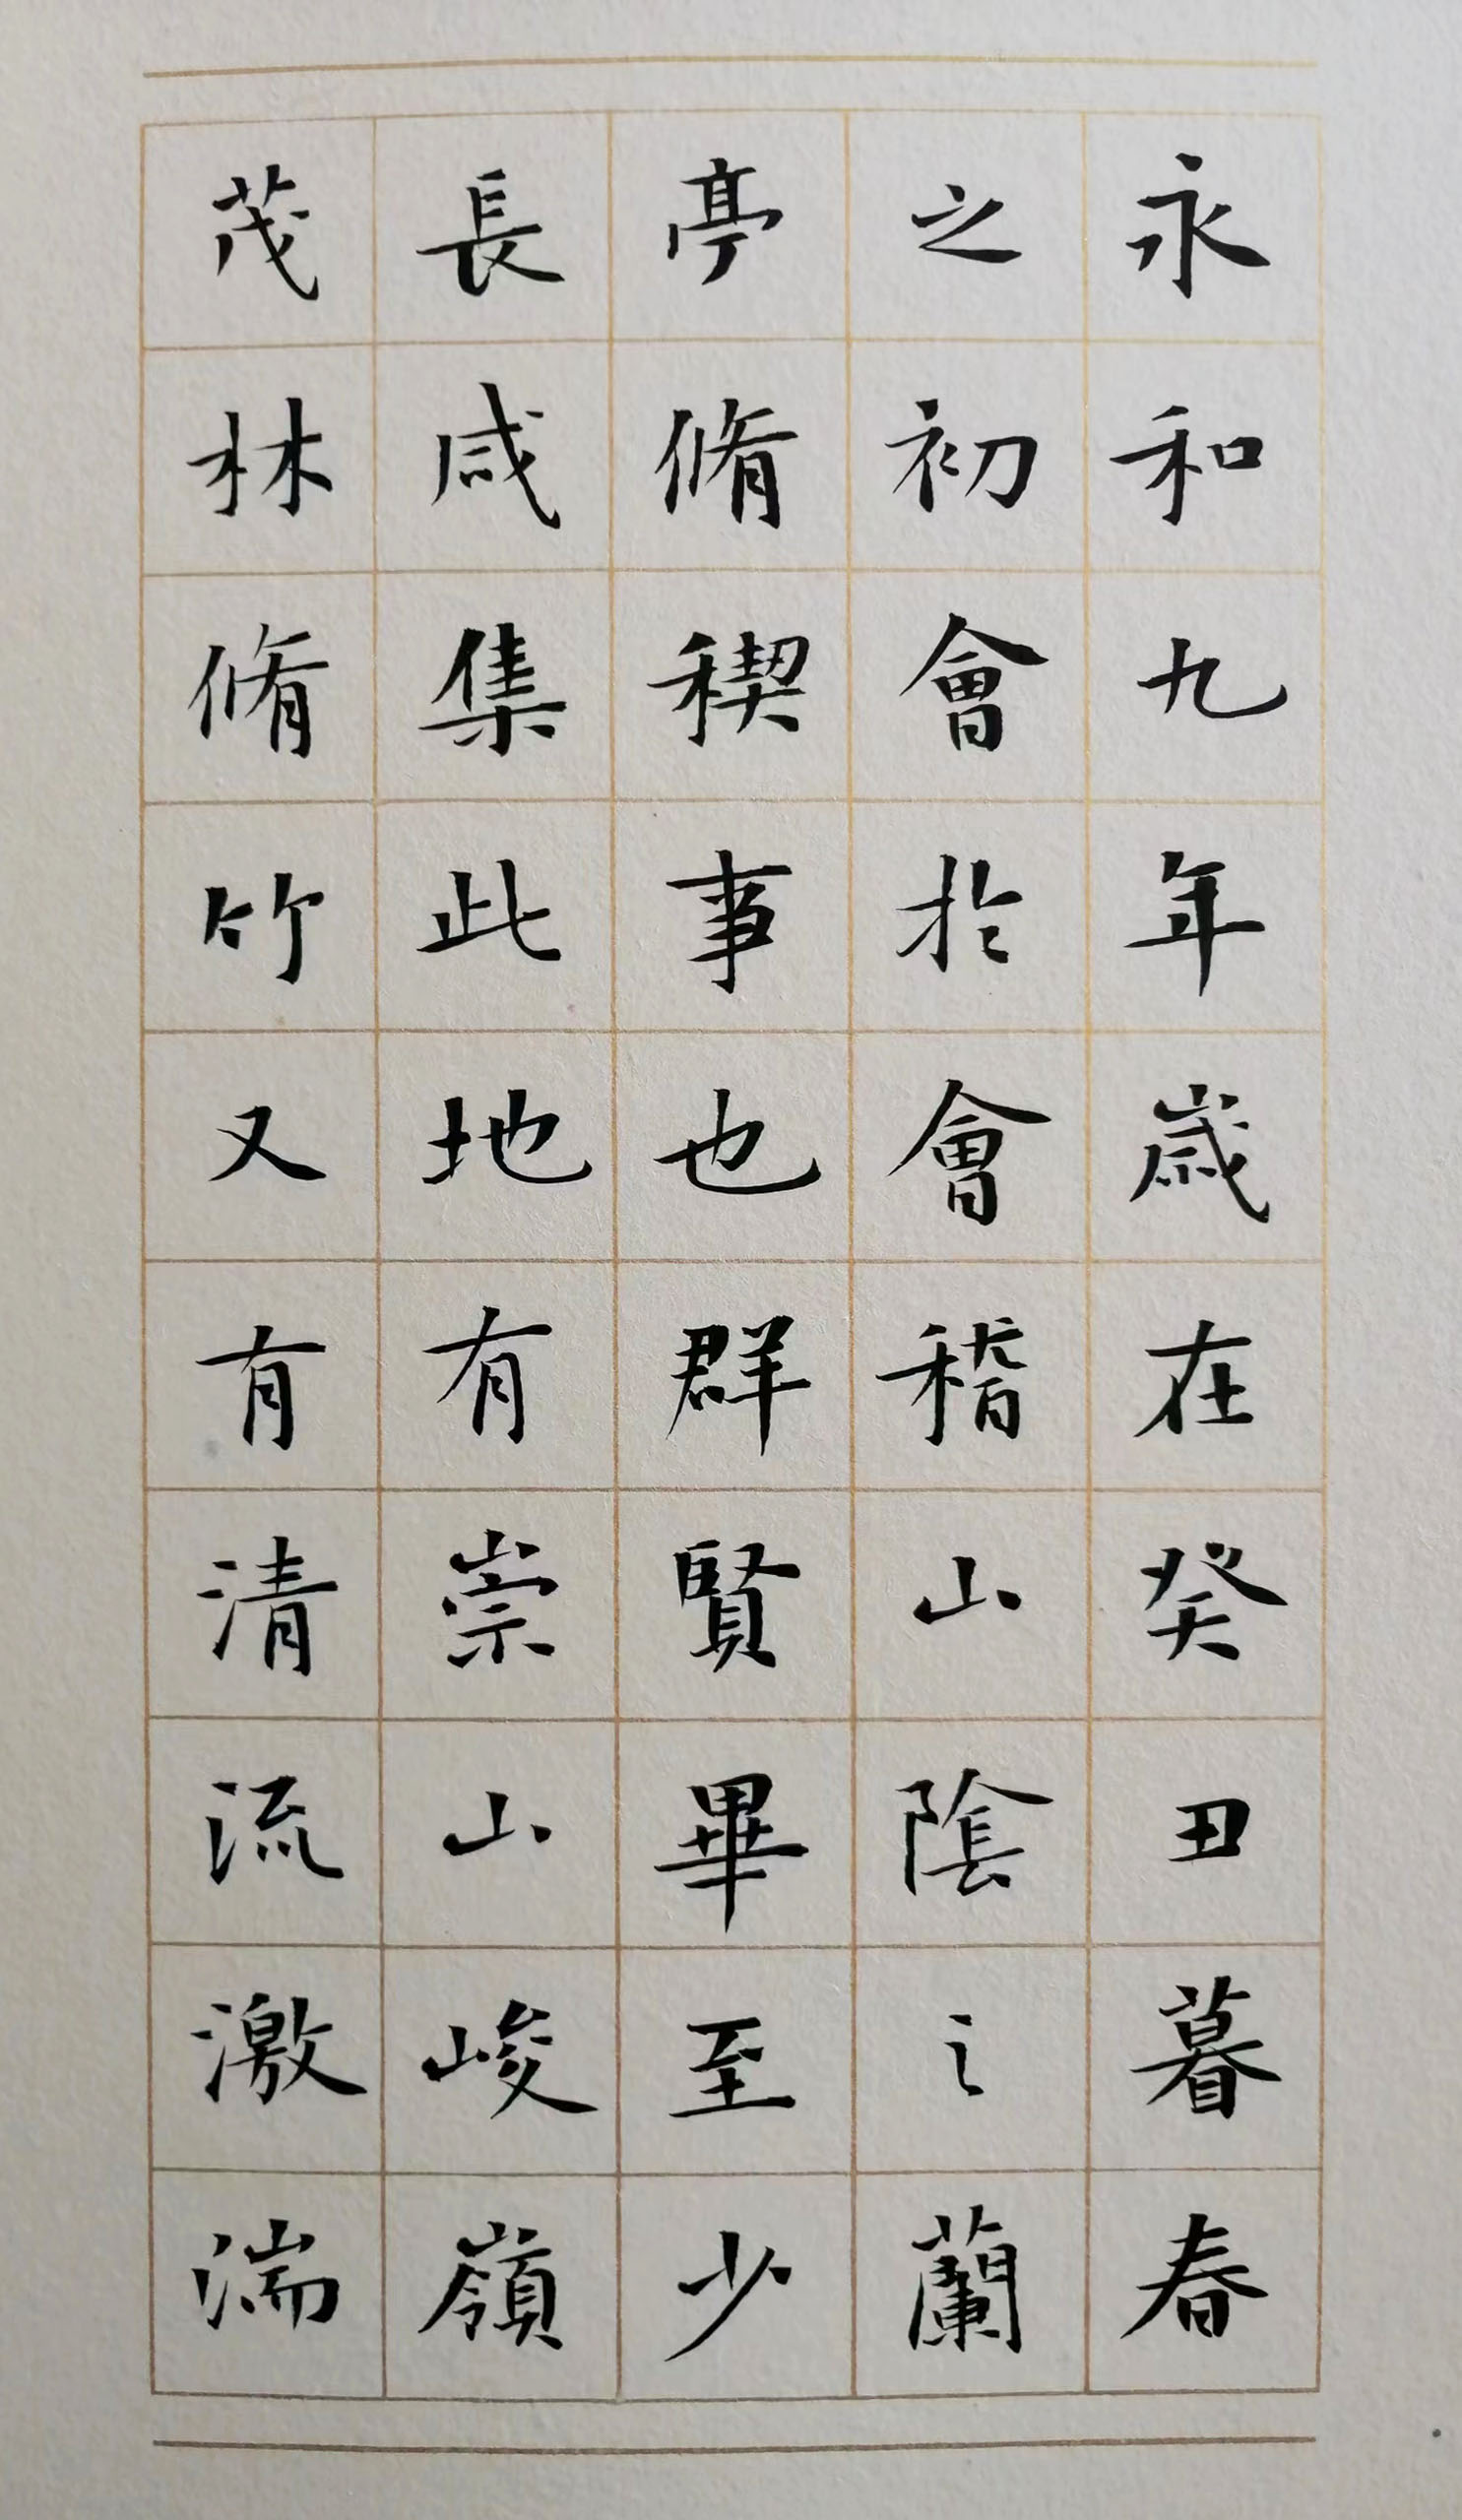 永和九年歲在癸丑暮春
之初會於會稽山陰之蘭
亭脩稧事也群賢畢至少
長咸集此地有崇山峻嶺
茂林脩竹又有清流激湍